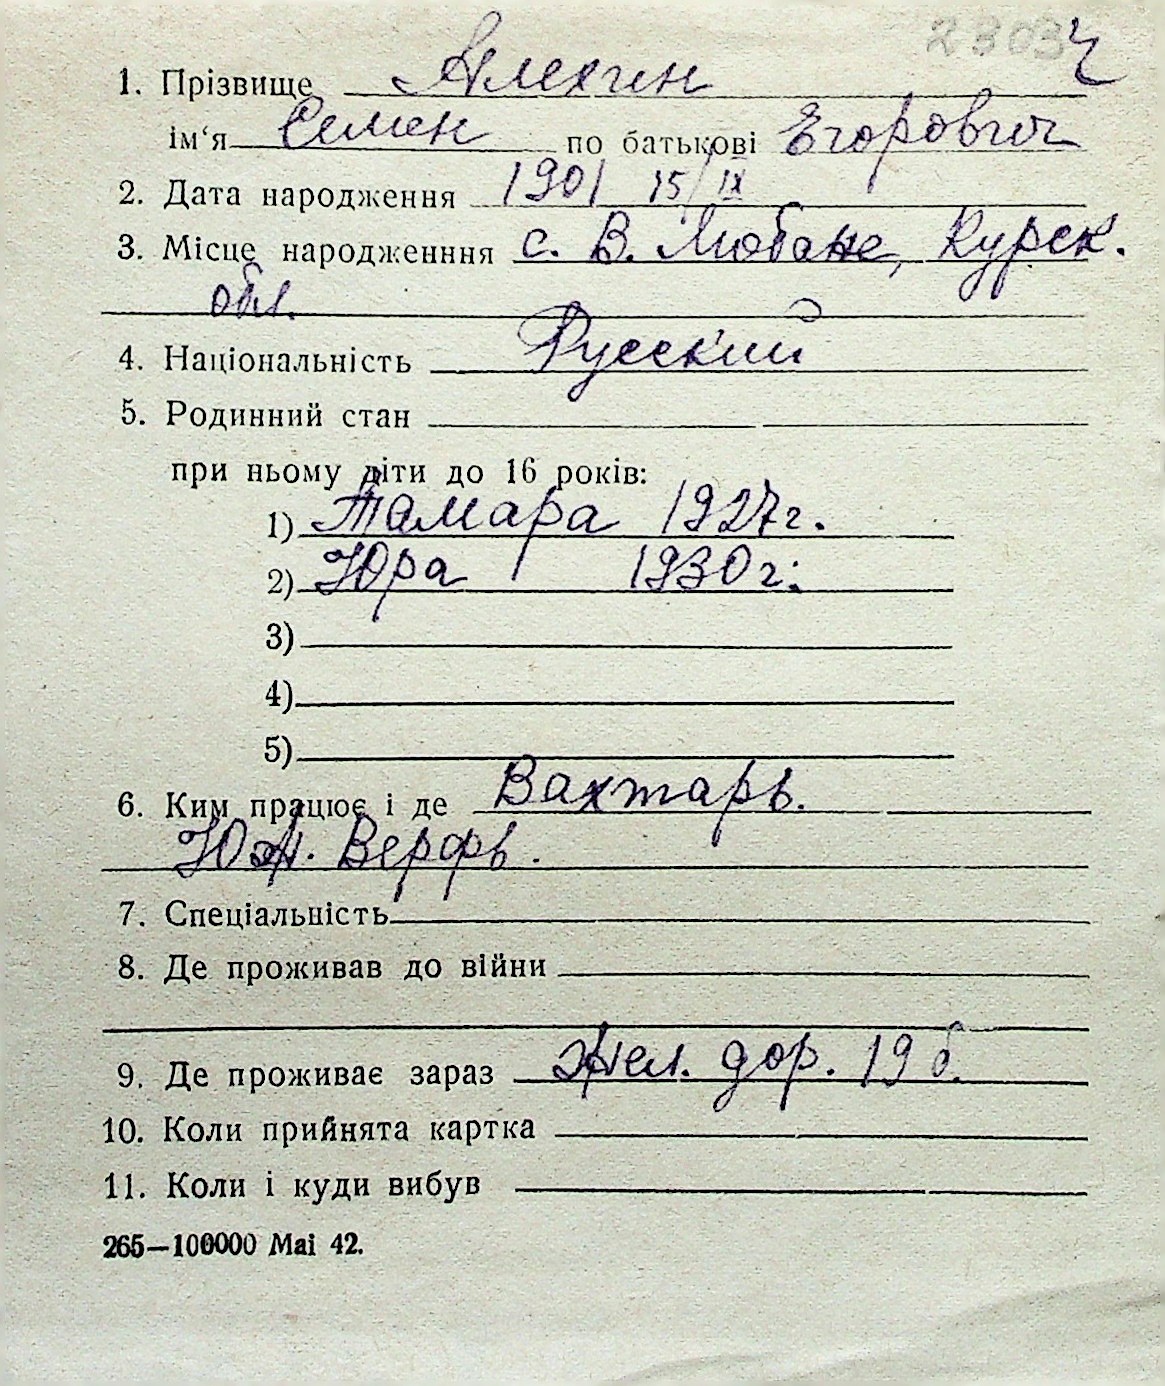 2303 Ч
1. Прізвище Алехин
ім‘я Семен по батькові Егорович
2. Дата народження 1901 15/IX
3. Місце народженння с. В. Любаже, Курск.
обл.
4. Національність Русский
5. Родинний стан
при ньому діти до 16 років:
1) Тамара 1927г.
2) Юра 1930г.
3)
4)
5)
6. Ким працює і де Вахтарь.
Юж. Верфь.
7. Спеціальність
8. Де проживав до війни
9. Де проживає зараз Жел. дор. 19 б.
10. Коли прийнята картка
11. Коли і куди вибув
265—100000 Mai 42.